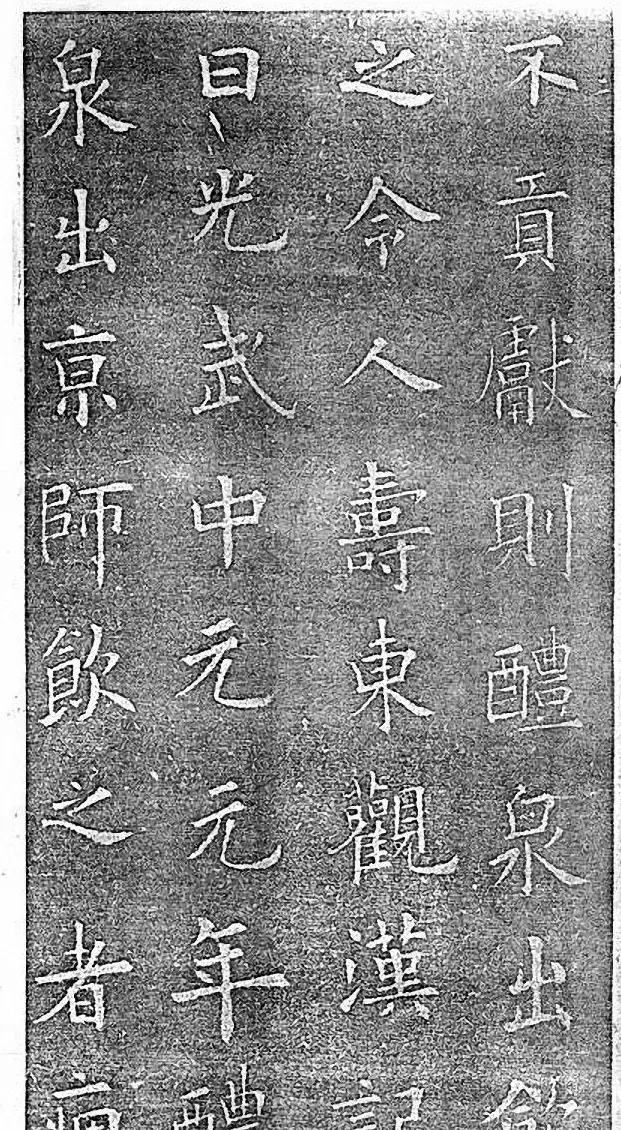 不貢獻則醴泉出飲
之令人壽東觀漢記
曰光武中元元年醴
泉出京師飲之者痼